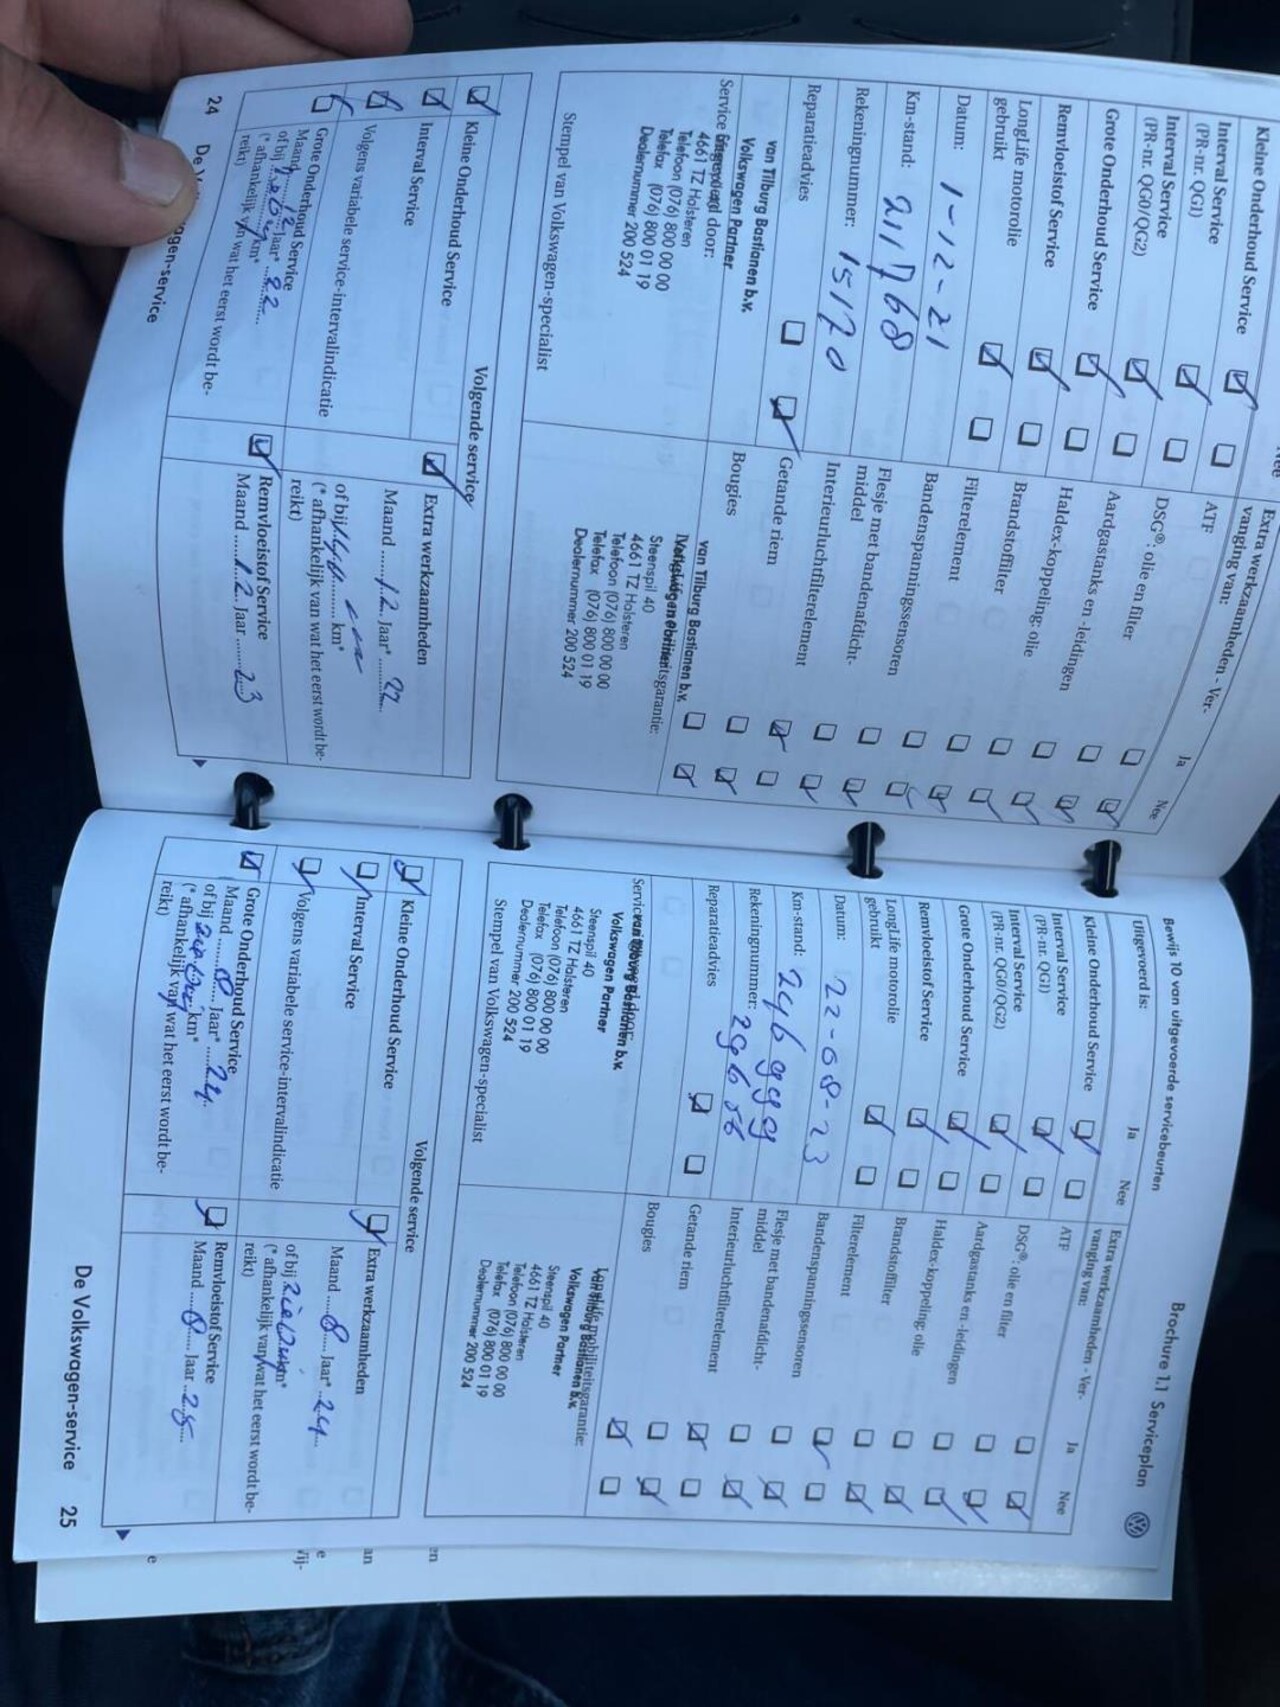 Nee
Kleine Onderhoud Service
Interval Service
(PR-nr. QG1)
Interval Service
(PR-nr. QG0/QG2)
Grote Onderhoud Service
Remvloeistof Service
LongLife motorolie
gebruikt
Datum: 1-12-21
Km-stand: 211768
Rekeningnummer: 15120
Reparatieadvies
van Tilburg Bastianen b.v.
Volkswagen Partner
Service
door:
4661 TZ Halsteren
Telefoon (076) 800 00 00
Telefax (076) 800 01 19
Dealernummer 200 524
Stempel van Volkswagen-specialist
Extra werkzaamheden - Ver-
vanging van:
Ja
Nee
ATF
DSG®: olie en filter
Aardgastanks en -leidingen
Haldex-koppeling: olie
Brandstoffilter
Filterelement
Bandenspanningssensoren
Flesje met bandenafdicht-
middel
Interieurluchtfilterelement
Getande riem
Bougies
van Tilburg Bastianen b.v.
Steenspil 40
4661 TZ Halsteren
Telefoon (076) 800 00 00
Telefax (076) 800 01 19
Dealernummer 200 524
Volgende service
Kleine Onderhoud Service
Interval Service
Volgens variabele service-intervalindicatie
Grote Onderhoud Service
Maand 12 Jaar* 22
of bij km*
(* afhankelijk van wat het eerst wordt be-
reikt)
Extra werkzaamheden
Maand 12 Jaar* 22
of bij km*
(* afhankelijk van wat het eerst wordt be-
reikt)
Remvloeistof Service
Maand 12 Jaar 23
24
De
agen-service
Brochure 1.1 Serviceplan
Bewijs 10 van uitgevoerde servicebeurten
Uitgevoerd is:
Ja
Nee
Kleine Onderhoud Service
Interval Service
(PR-nr. QG1)
Interval Service
(PR-nr. QG0/QG2)
Grote Onderhoud Service
Remvloeistof Service
LongLife motorolie
gebruikt
Datum: 22-08-23
Km-stand: 246999
Rekeningnummer:
Reparatieadvies
van Tilburg Bastianen b.v.
Volkswagen Partner
Steenspil 40
4661 TZ Halsteren
Telefoon (076) 800 00 00
Telefax (076) 800 01 19
Dealernummer 200 524
Stempel van Volkswagen-specialist
Extra werkzaamheden - Ver-
vanging van:
Ja
Nee
ATF
DSG®: olie en filter
Aardgastanks en -leidingen
Haldex-koppeling: olie
Brandstoffilter
Filterelement
Bandenspanningssensoren
Flesje met bandenafdicht-
middel
Interieurluchtfilterelement
Getande riem
Bougies
van Tilburg Bastianen b.v.
Volkswagen Partner
Steenspil 40
4661 TZ Halsteren
Telefoon (076) 800 00 00
Telefax (076) 800 01 19
Dealernummer 200 524
Volgende service
Kleine Onderhoud Service
Interval Service
Volgens variabele service-intervalindicatie
Grote Onderhoud Service
Maand 8 Jaar* 24
of bij km*
(* afhankelijk van wat het eerst wordt be-
reikt)
Extra werkzaamheden
Maand 8 Jaar* 24
of bij
(* afhankelijk van wat het eerst wordt be-
reikt)
Remvloeistof Service
Maand 8 Jaar 25
De Volkswagen-service 25
en
an
e
/ij-
e